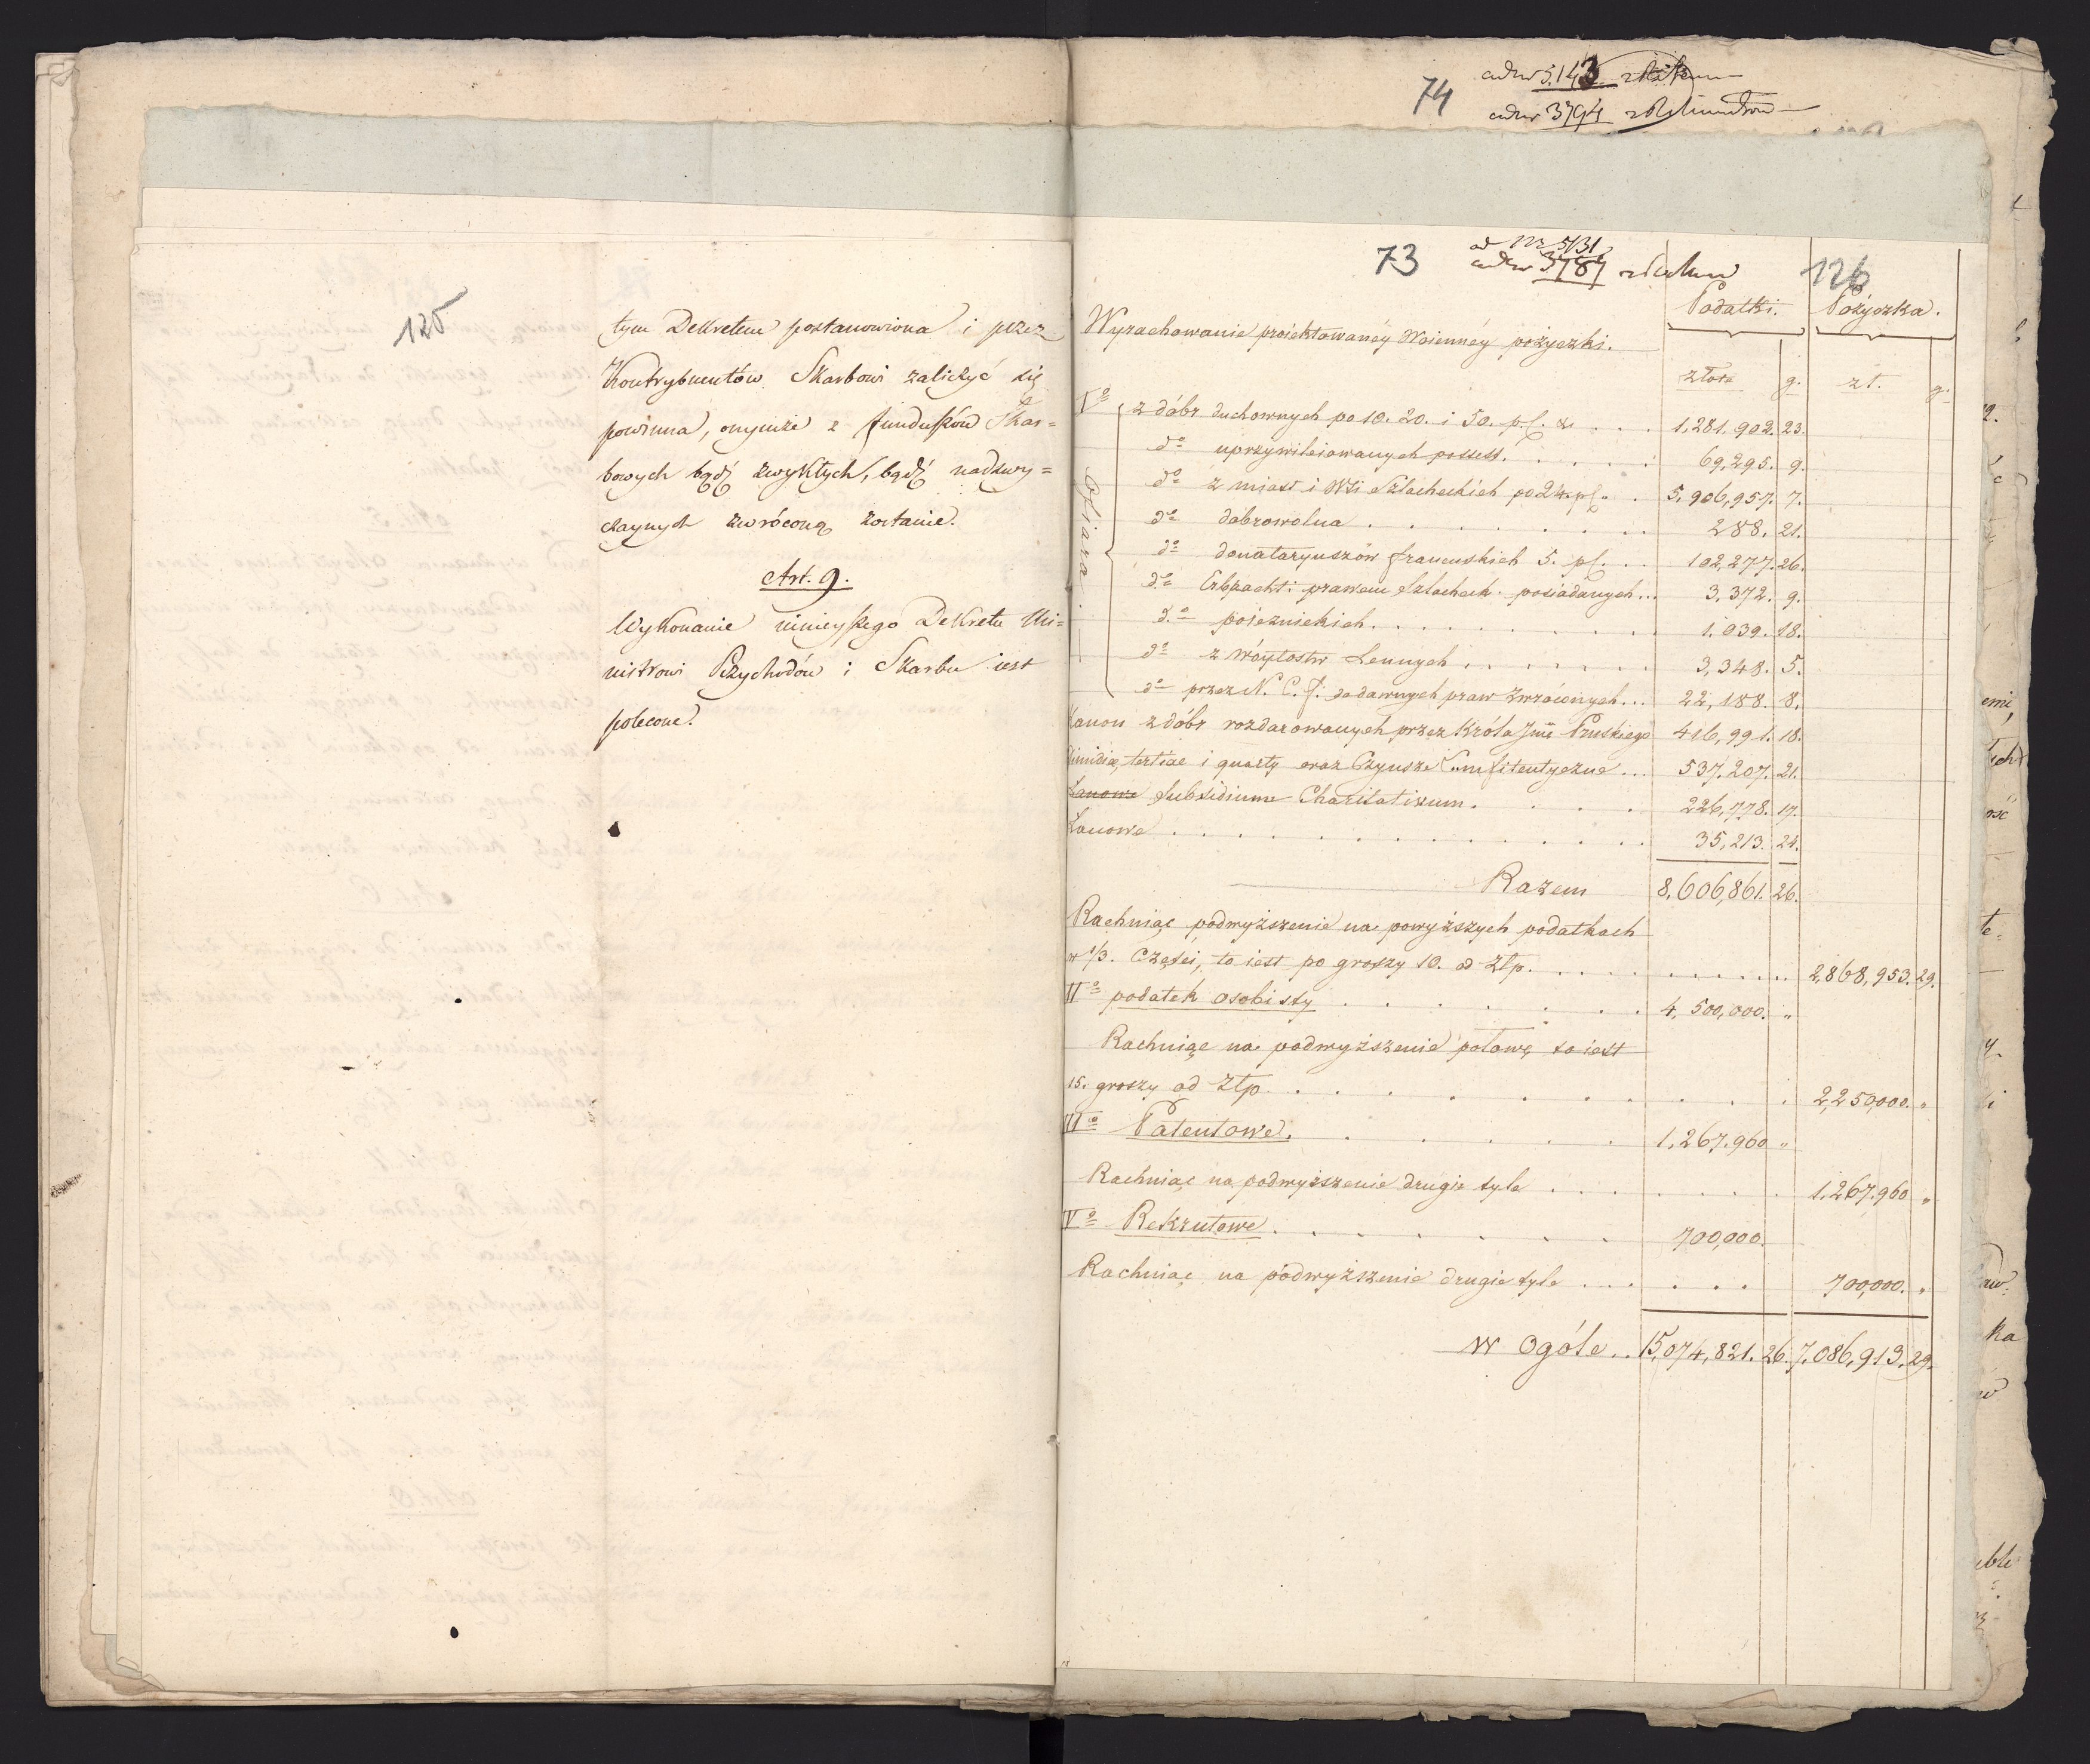 125
tym Dekretem postanowiona i przez
Kontrybuentów Skarbowi zaliczyć się
powinna, onymże z funduszów Skar=
bowych bądź zwykłych, bądź nadzwy=
czaynych zwróconą zostanie.
Art. 9.
Wykonanie ninieyszego Dekretu Mi=
nistrowi Przychodów i Skarbu iest
polecone.
74
5.143
3794
73
od Nr 5131
3787
126
Podatki. Pożyczka.
Wyrachowanie proiektowanéy Woiennéy pożyczki.
złote g. zł. g.
Iº z dóbr duchownych po 10. 20. i 50. p.C. 1,281,902. 23.
Ofiara
dº uprzywileiowanych possess. 69,295. 9.
dº z miast i Wsi Szlacheckich po 24 p.C. 5,906,957. 7.
dº dobrowolna 288. 21.
dº donataryuszów francuskich 5. p.C. 102,277. 26.
dº Erbpacht: prawem Szlacheck: posiadanych 3,372. 9.
dº poiezuickich 1,039. 18.
dº z Wóytostw Lennych 3,348. 5.
dº przez N. C. F. do dawnych praw zwróconych 22,188. 8.
Kanon z dóbr rozdarowanych przez Króla Jmci Pruskiego 416,991. 18.
Dimidiae, tertiae i quarty oraz Czynsze Emfiteutyczne 537,207. 21.
Łanowe Subsidium Charitativum 226,778. 17.
Łanowe 35,213. 24.
Razem 8,606,861. 26.
Rachuiąc podwyższenie na powyższych podatkach
w 1/3. Części, to iest po groszy 10. od Złp. 2,868,953. 29.
IIº podatek osobisty 4,500,000. "
Rachuiąc na podwyższenie połowę to iest
15. groszy od Złp. 2,250,000. "
IIIº Patentowe. 1,267,960 "
Rachuiąc na podwyższenie drugie tyle 1,267,960 "
IVº Rekrutowe 700,000.
Rachuiąc na podwyższenie drugie tyle 700,000. "
w Ogóle 15,074,821. 26. 7,086,913. 29.